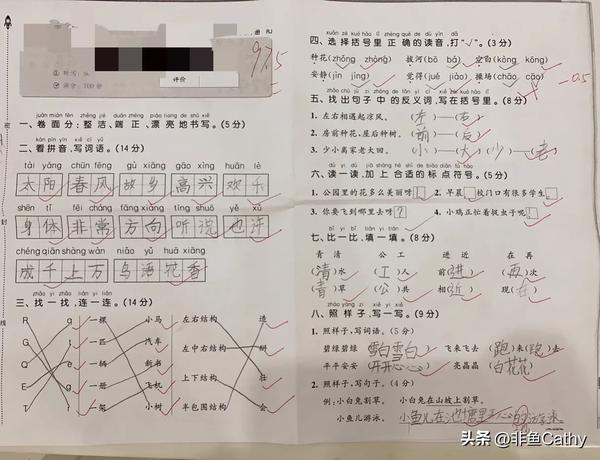 97.5
时间：
满分：100分
评价
册 RJ
一、卷面分：整洁、端正、漂亮地书写。(5分)
二、看拼音，写词语。(14分)
tài yáng chūn fēng gù xiāng gāo xìng huān lè
太阳 春风 故乡 高兴 欢乐
shēn tǐ fēi cháng fāng xiàng tīng shuō yě xǔ
身体 非常 方向 听说 也许
chéng qiān shàng wàn niǎo yǔ huā xiāng
成千上万 鸟语花香
三、找一找，连一连。(14分)
R g 一棵 小马 左右结构 造
G t 一匹 汽车 左中右结构 树
Q e 一辆 新书 上下结构 壮
E q 一册 飞机 半包围结构 会
T r 一架 小树
密
封
线
四、选择括号里正确的读音，打“√”。(3分)
种花(zhǒng zhòng) 拔河(bō bá) 空白(kòng kōng)
安静(jìn jìng) 觉得(jué jiào) 操场(chǎo cāo)
-0.5
五、找出句子中的反义词，写在括号里。(8分)
1. 左右相遇起凉风。 (左)—(右)
2. 房前种花，屋后种树。 (前)—(后)
3. 少小离家老大回。 (小)—(大) (少)—(老)
六、读一读，加上合适的标点符号。(5分)
1. 公园里的花多么美丽呀 2. 早晨 校门口有很多学生
3. 你要飞到哪里去呀? 4. 小鸡正忙着捉虫子呢
七、比一比，填一填。(8分)
青 清 公 工 进 近 在 再
(清)水 (工)人 前(进) (再)次
(青)草 (公)共 相(近) 现(在)
八、照样子，写一写。(9分)
1. 照样子，写词语。(5分)
碧绿碧绿 雪白雪白 飞来飞去 (跑)来(跑)去
平平安安 开开心心 亮晶晶 (白花花)
2. 照样子，写句子。(4分)
例：小白兔割草。 小白兔在山坡上割草。
小鱼儿游泳。 小鱼儿在池塘里开心的游泳
头条 @非鱼Cathy